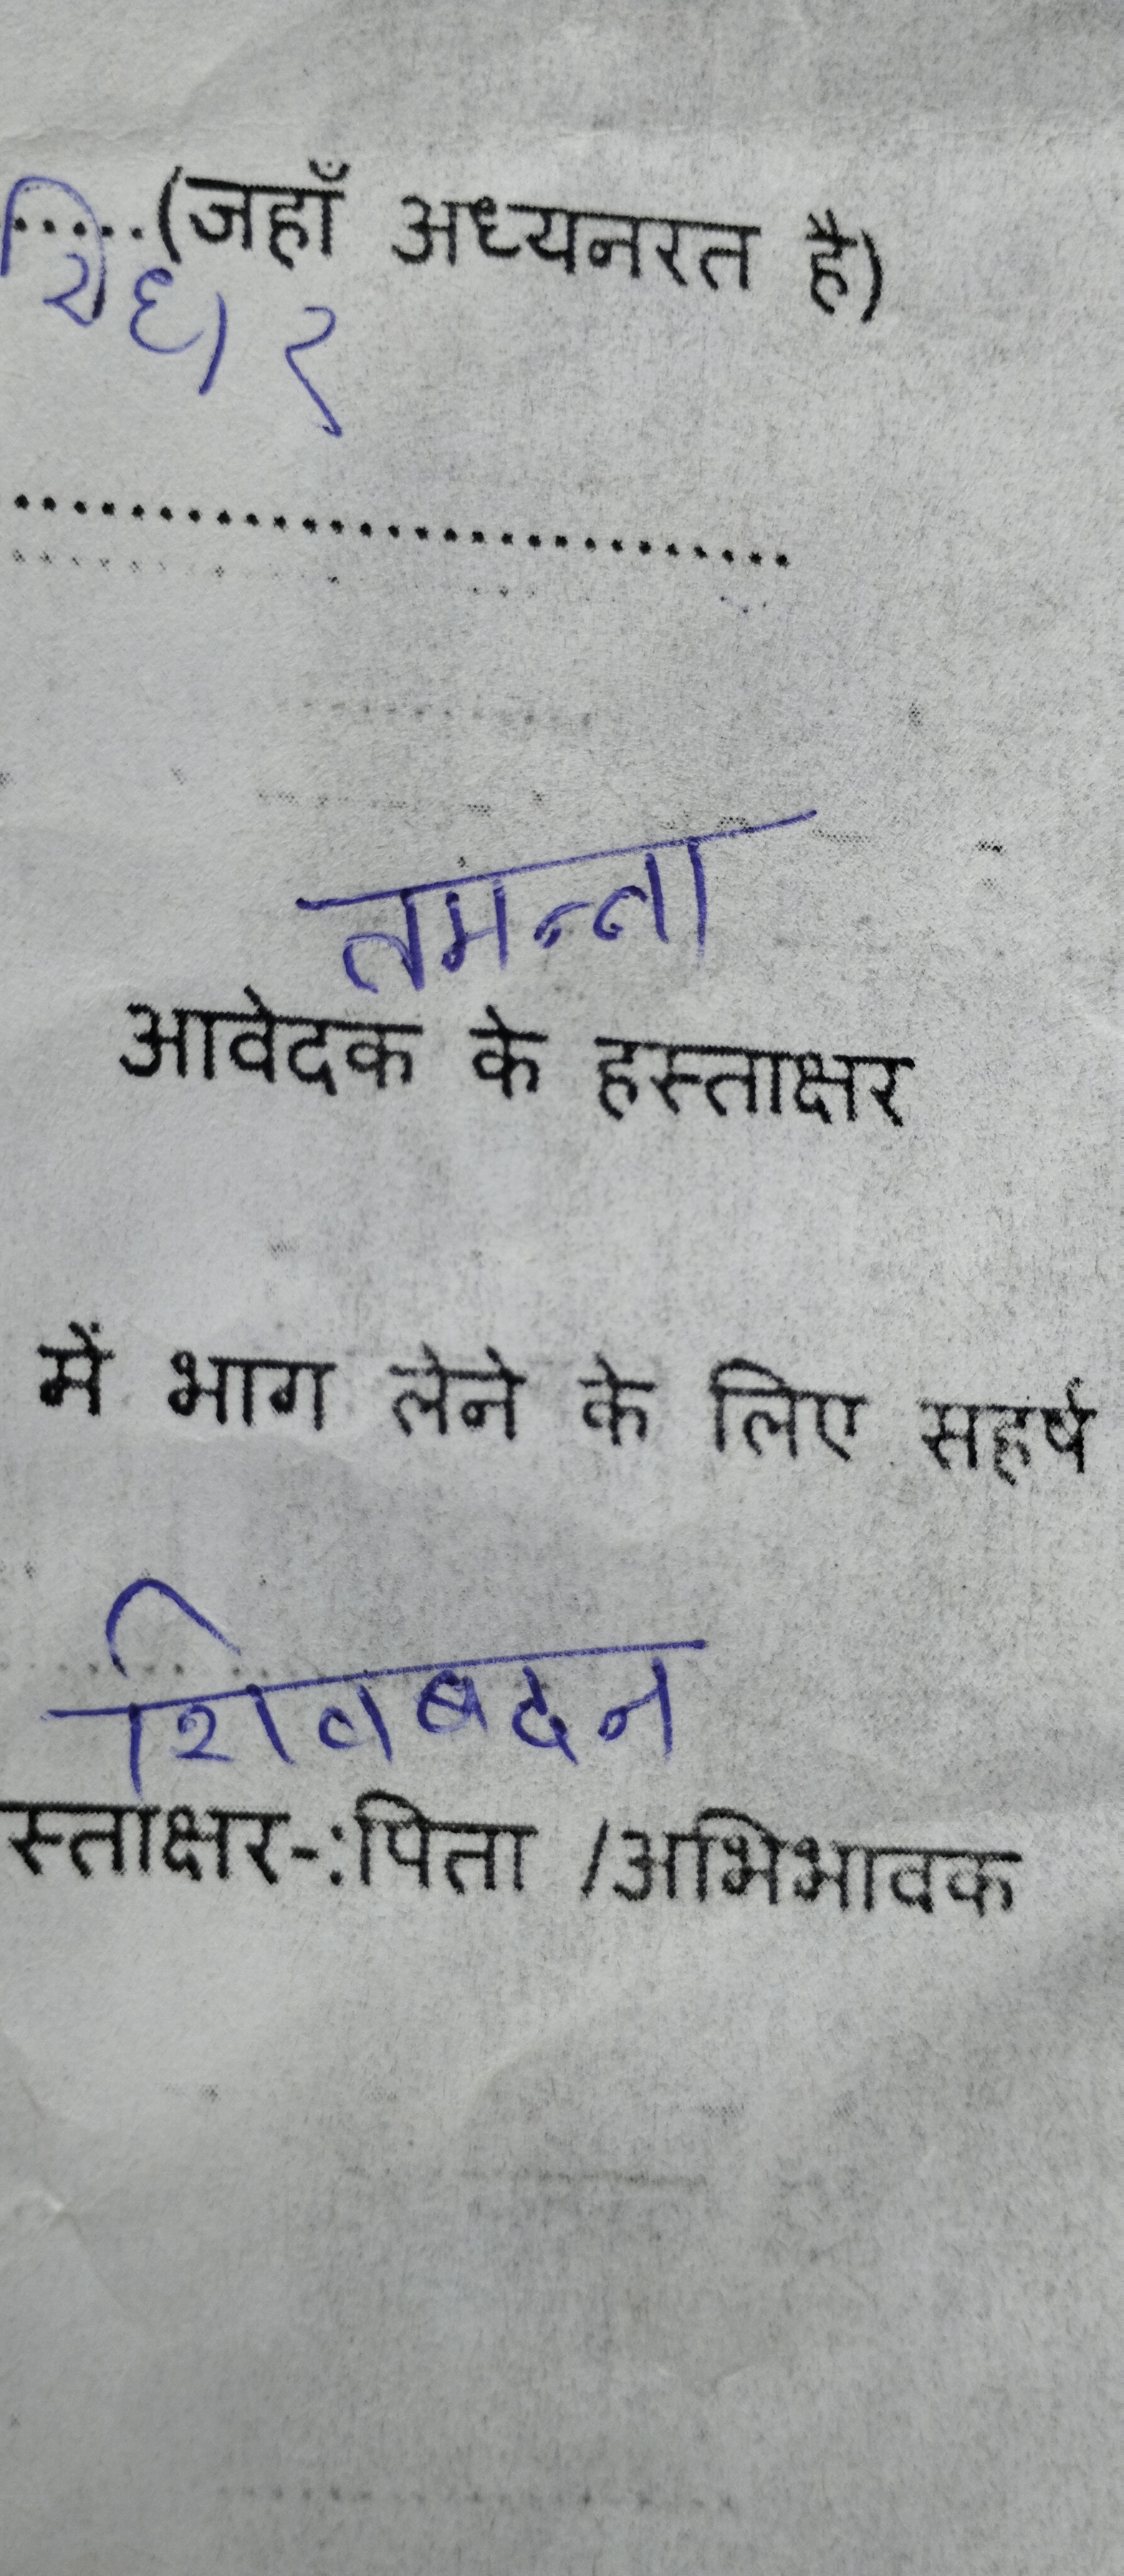 .....(जहाँ अध्यनरत है)
..............................
तमन्ना
आवेदक के हस्ताक्षर
में भाग लेने के लिए सहर्ष
शिवबदन
स्ताक्षर-:पिता /अभिभावक